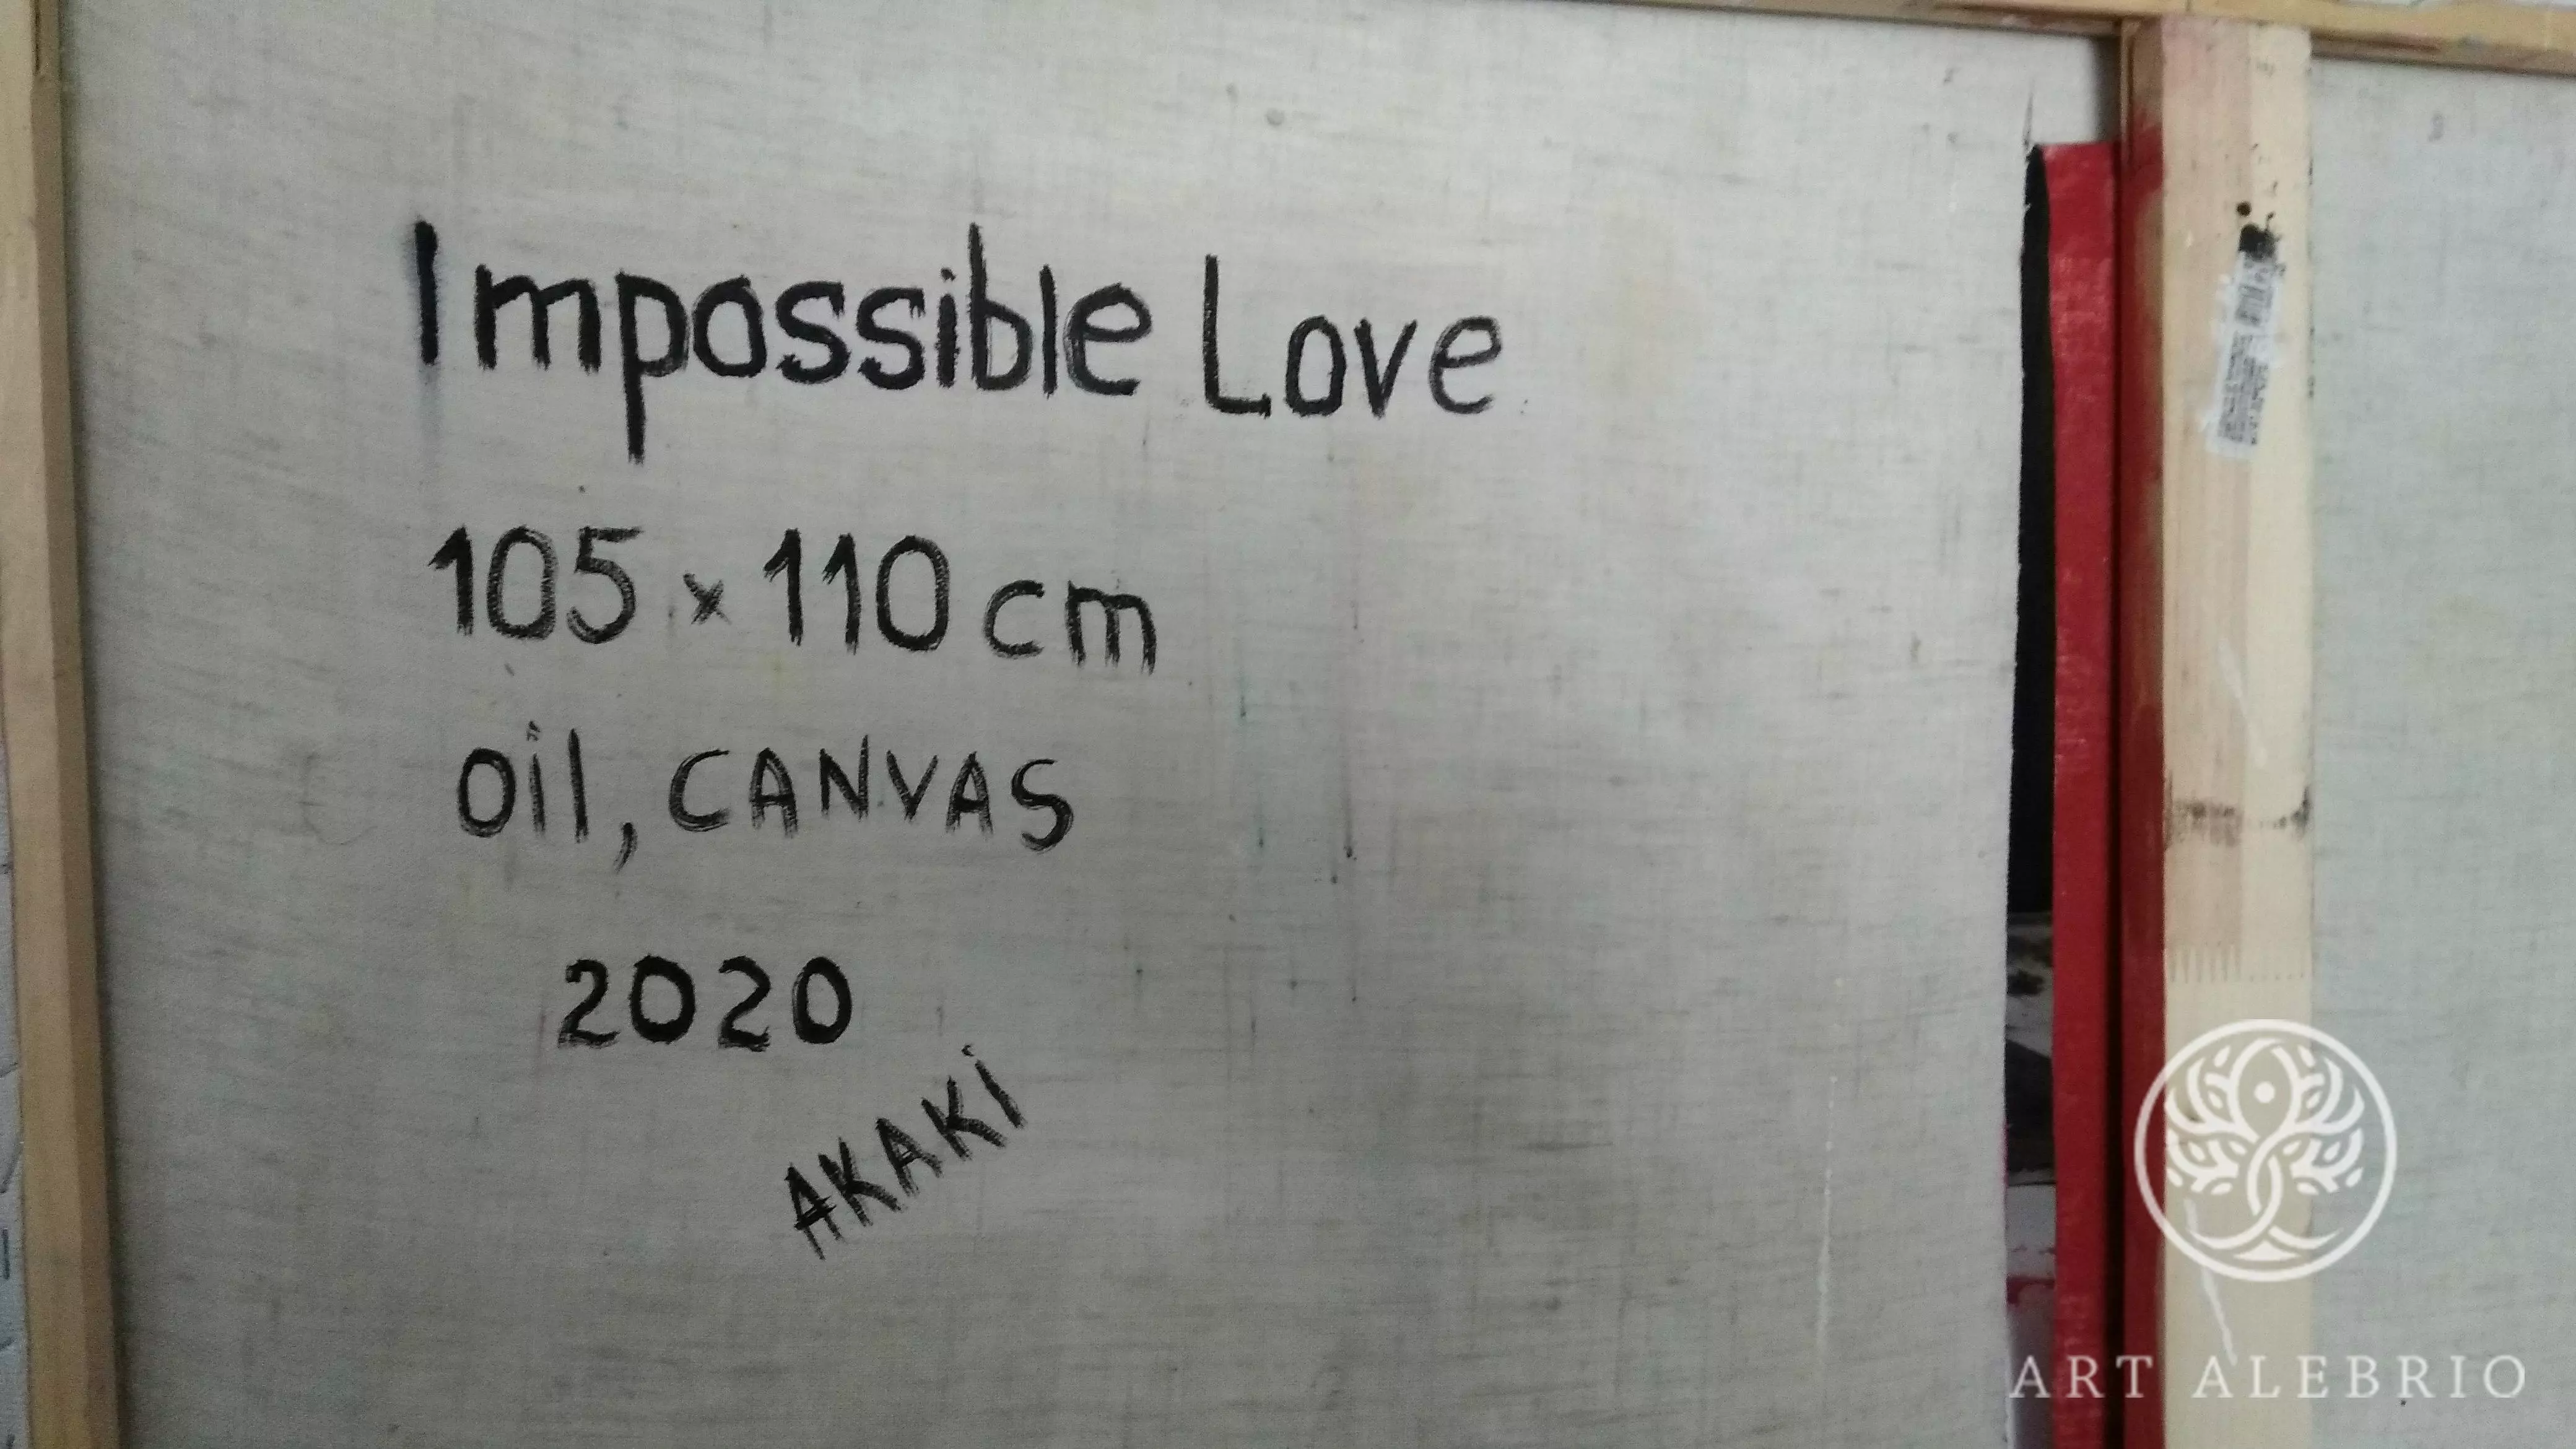 Impossible Love
105 x 110 cm
oil, CANVAS
2020
AKAKi
ART ALEBRIO